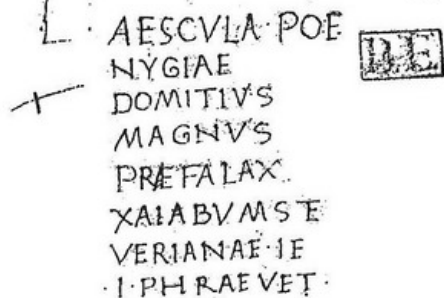 AESCVLA·POE
NYGIAE
DOMITIVS
MAGNVS
PRÆFALAX
XAIABVMSTE
VERIANAE·IE
·I·PHRAEVET·
D.E